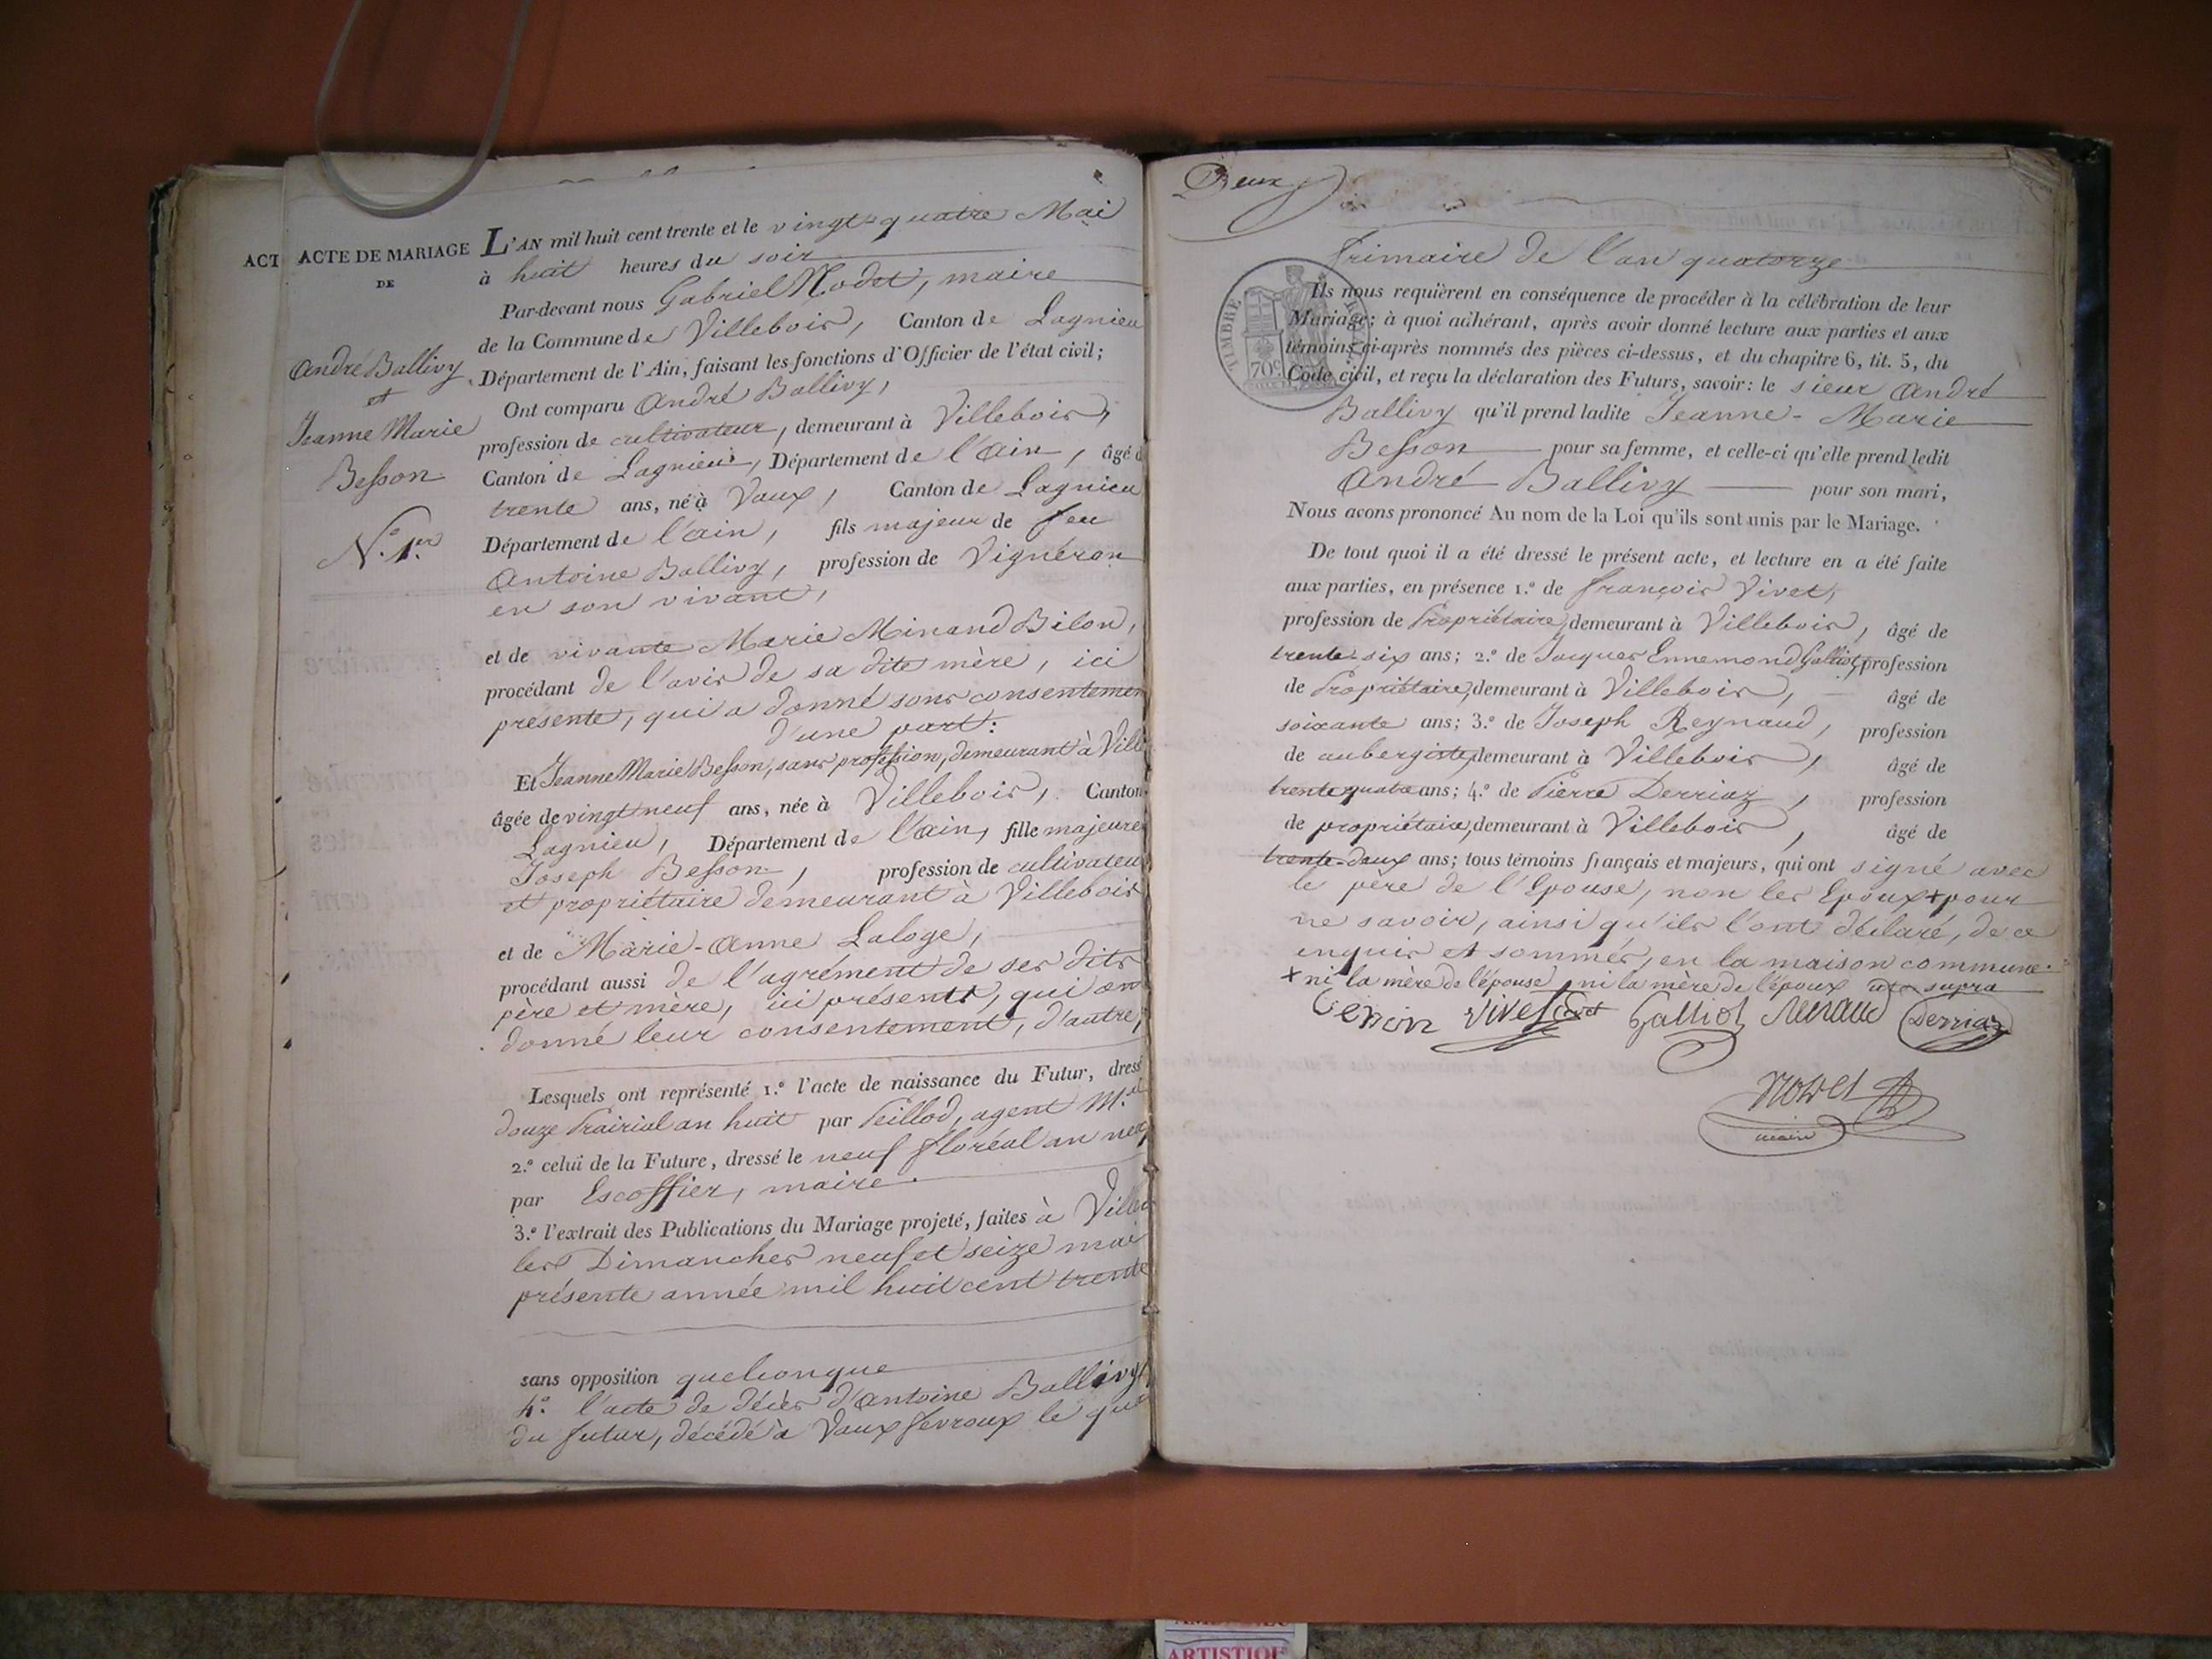 ACT
ACTE DE MARIAGE
DE
André Ballivy
et
Jeanne Marie
Besson
N.º 1.er
L'AN mil huit cent trente et le vingt-quatre Mai
à huit heures du soir
Par-devant nous Gabriel Nodet, maire
de la Commune de Villebois, Canton de Lagnieu
Département de l'Ain, faisant les fonctions d'Officier de l'état civil;
Ont comparu André Ballivy,
profession de cultivateur, demeurant à Villebois,
Canton de Lagnieu, Département de l'Ain, âgé d
trente ans, né à Vaux, Canton de Lagnieu
Département de l'ain, fils majeur de feu
Antoine Ballivy, profession de Vignéron
en son vivant,
et de vivante Marie Minand Bilon,
procédant de l'avis de sa dite mère, ici
présente, qui a donné sons consentemen
d'une part:
Et Jeanne Marie Besson, sans profession, demeurant à Ville
âgée de vingt neuf ans, née à Villebois, Canton
Lagnieu, Département de l'ain, fille majeure
Joseph Besson, profession de cultivateu
et propriétaire demeurant à Villebois
et de Marie-Anne Laloge,
procédant aussi de l'agrément de ses dits
père et mère, ici présents, qui on
donné leur consentement, d'autre,
Lesquels ont représenté 1.º l'acte de naissance du Futur, dressé
douze Prairial an huit par Peillod, agent M.al
2.º celui de la Future, dressé le neuf floréal an neuf
par Escoffier, maire.
3.º l'extrait des Publications du Mariage projeté, faites à Villeb
les Dimanches neuf et seize mai
présente année mil huit cent trente
sans opposition quelconque
4.º l'acte de décès d'Antoine Ballivy,
du futur, décédé à Vaux fevroux le qua
Deux
frimaire de l'an quatorze
TIMBRE ROYAL
70c
Ils nous requièrent en conséquence de procéder à la célébration de leur
Mariage; à quoi adhérant, après avoir donné lecture aux parties et aux
témoins ci-après nommés des pièces ci-dessus, et du chapitre 6, tit. 5, du
Code civil, et reçu la déclaration des Futurs, savoir: le sieur André
Ballivy qu'il prend ladite Jeanne-Marie
Besson pour sa femme, et celle-ci qu'elle prend ledit
André Ballivy pour son mari,
Nous avons prononcé Au nom de la Loi qu'ils sont unis par le Mariage.
De tout quoi il a été dressé le présent acte, et lecture en a été faite
aux parties, en présence 1.º de françois Vivet,
profession de Propriétaire, demeurant à Villebois, âgé de
trente-six ans; 2.º de Jacques Ennemond Galliot, profession
de Propriétaire, demeurant à Villebois, âgé de
soixante ans; 3.º de Joseph Reynaud, profession
de aubergiste, demeurant à Villebois, âgé de
trente quatre ans; 4.º de Pierre Derriaz, profession
de propriétaire, demeurant à Villebois, âgé de
trente-deux ans; tous témoins français et majeurs, qui ont signé avec
le père de l'Epouse, non les Epoux + pour
ne savoir, ainsi qu'ils l'ont déclaré, de ce
enquis et sommés, en la maison commune.
+ ni la mère de l'épouse, ni la mère de l'époux ut supra
Vivet Galliot Renaud Derriaz
Nodet
maire
ARTISTIQUE